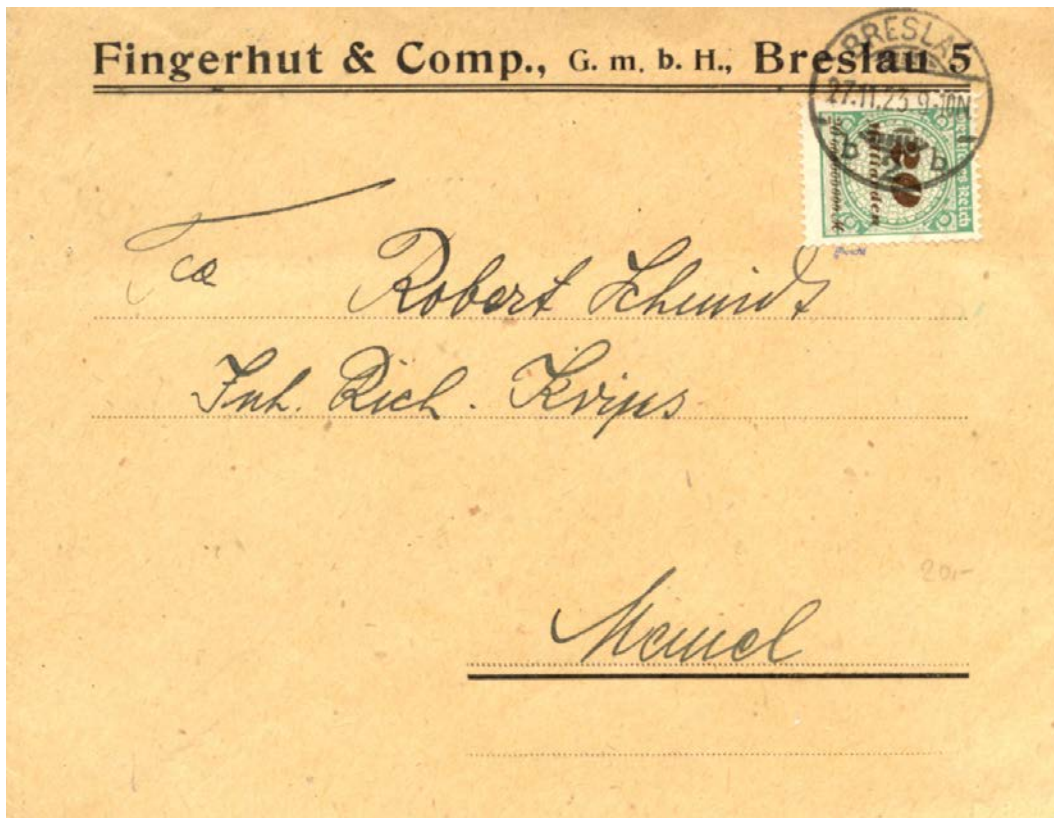 Fingerhut & Comp., G. m. b. H., Breslau 5
BRESLAU
27.11.23.9-10N
b b
Deutsches Reich
20
Milliarden
Fa Robert Schmidt
Inh. Rich. Krips
Memel
20,-